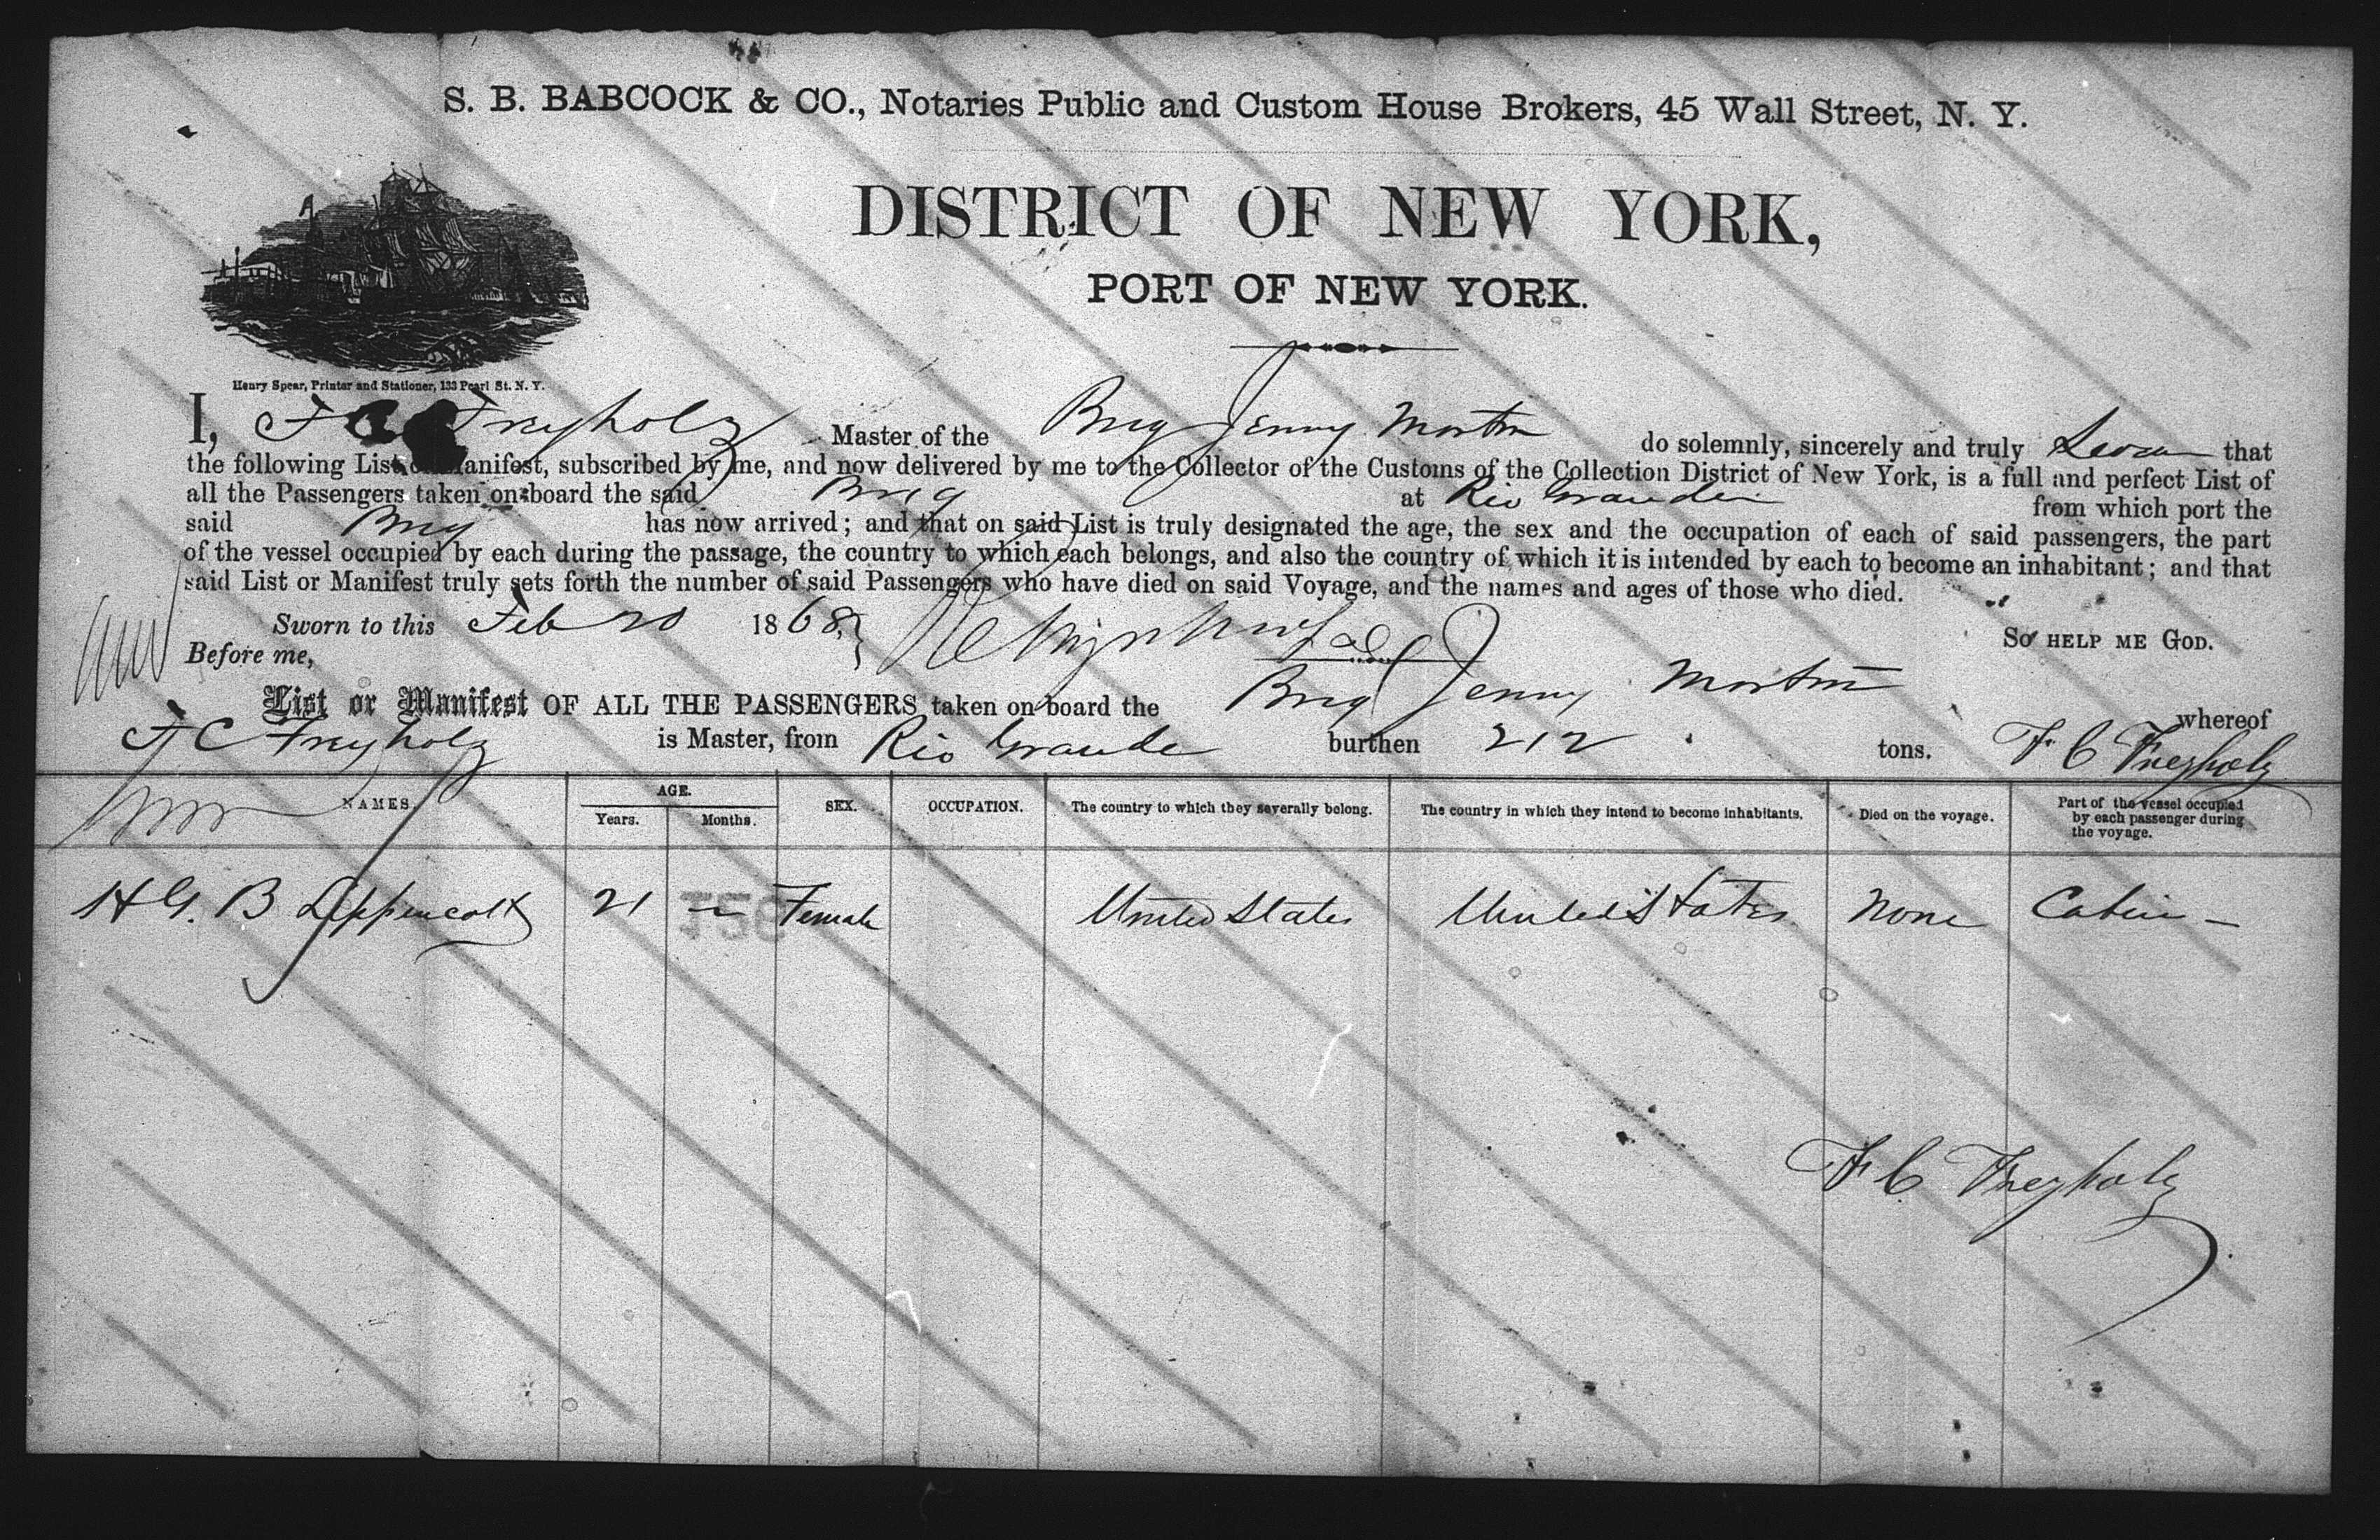 S. B. BABCOCK & CO., Notaries Public and Custom House Brokers, 45 Wall Street, N. Y.
DISTRICT OF NEW YORK,
PORT OF NEW YORK.
Henry Spear, Printer and Stationer, 133 Pearl St. N. Y.
I, F C Freyholz Master of the Brig Jenny Morton do solemnly, sincerely and truly Swear that
the following List or Manifest, subscribed by me, and now delivered by me to the Collector of the Customs of the Collection District of New York, is a full and perfect List of
all the Passengers taken on board the said Brig at Rio Grande from which port the
said Brig has now arrived; and that on said List is truly designated the age, the sex and the occupation of each of said passengers, the part
of the vessel occupied by each during the passage, the country to which each belongs, and also the country of which it is intended by each to become an inhabitant; and that
said List or Manifest truly sets forth the number of said Passengers who have died on said Voyage, and the names and ages of those who died.
Sworn to this Feb 20 1868, SO HELP ME GOD.
Before me,
List or Manifest OF ALL THE PASSENGERS taken on board the Brig Jenny Morton whereof
F C Freyholz is Master, from Rio Grande burthen 212 tons. F. C Freyholz
NAMES. AGE. Years. Months. SEX. OCCUPATION. The country to which they severally belong. The country in which they intend to become inhabitants. Died on the voyage. Part of the vessel occupied by each passenger during the voyage.
H G. B Lippencott 21 – Female United States United States None Cabin –
F C Freyholz